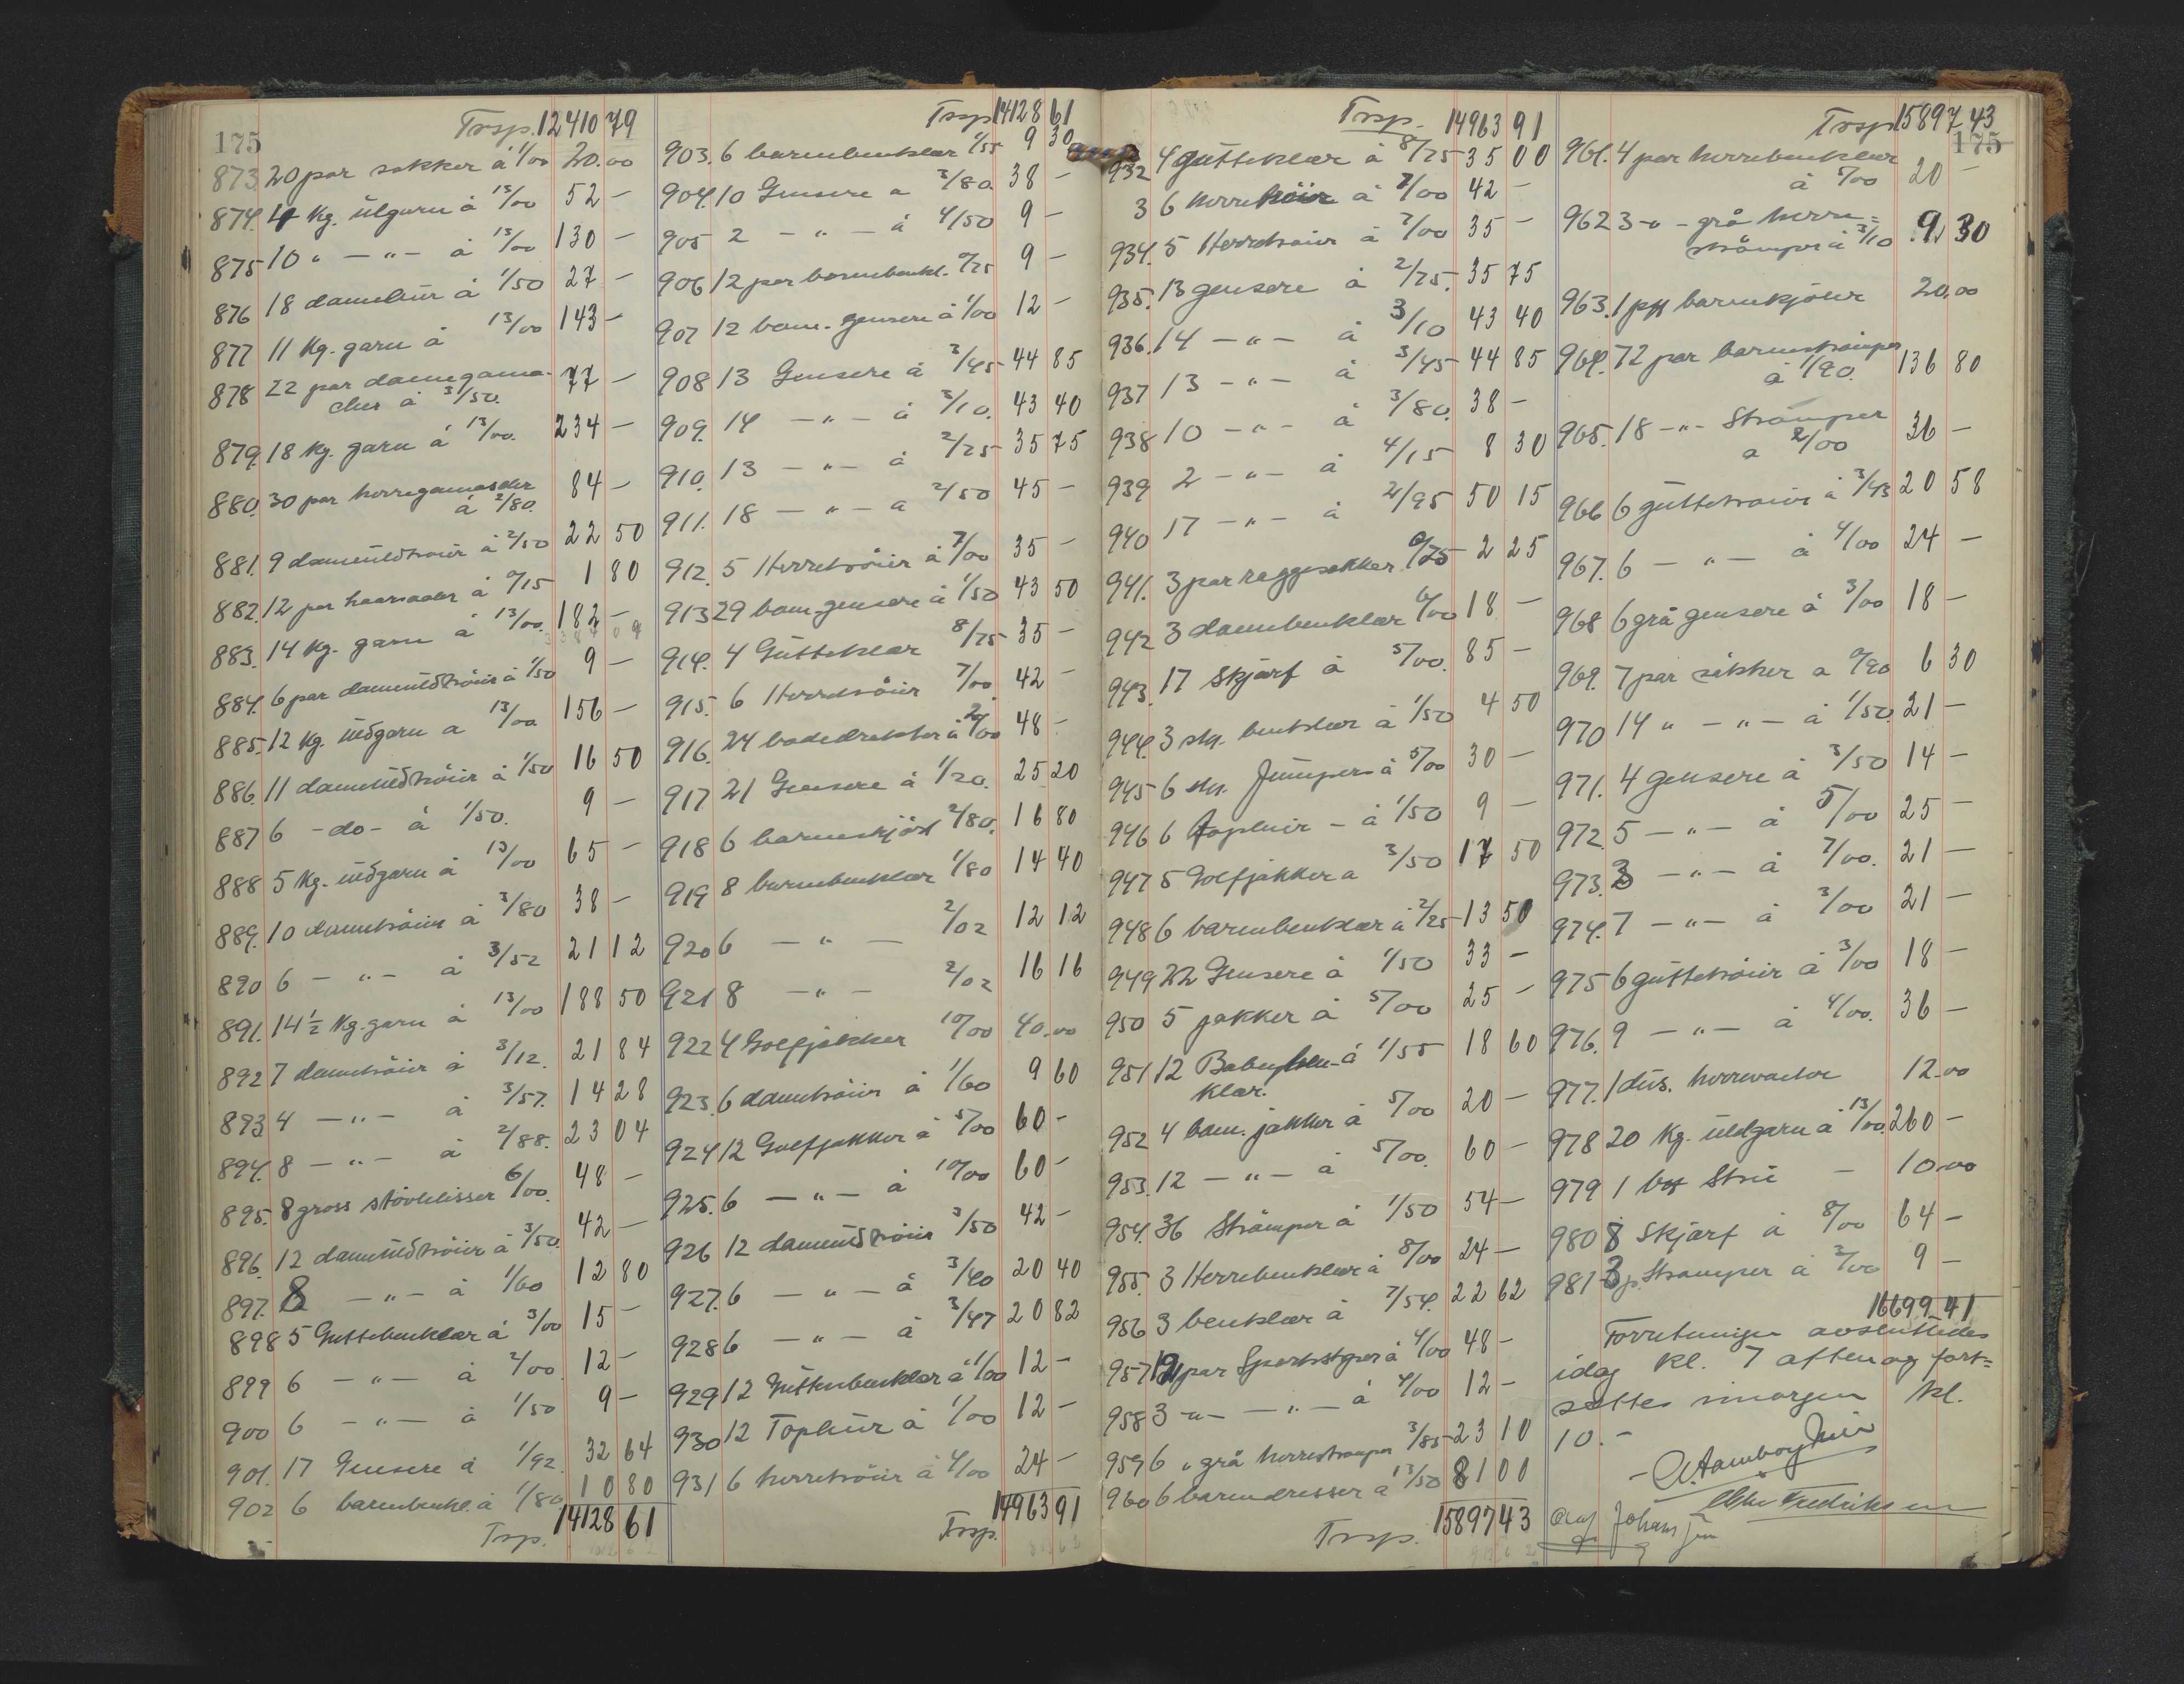 175
Trsp. 12410 79
873. 20 par sokker á 1/00 20.00
874. 4 Kg. ülgarn á 13/00 52 -
875 10 " - " - á 13/00 130 -
876 18 damelüir á 1/50 27 -
877 11 Kg. garn á 13/00 143 -
878 22 par damegama-
cher á 3/50. 77 -
879. 18 Kg. garn á 13/00. 234 -
880. 30 par herregamascher
á 2/80. 84 -
881. 9 dameüldtröier á 2/50 22 50
882. 12 par haansoler á 0/15 1 80
883. 14 Kg. garn á 13/00. 182 -
884. 6 par dameüldtröier á 1/50 9 -
885. 12 Kg. üldgarn a 13/00 156 -
886. 11 dameüldtröier á 1/50 16 50
887 6 - do - á 1/50. 9 -
888 5 Kg. üldgarn á 13/00 65 -
889. 10 dametröier á 3/80 38 -
890 6 - " - á 3/52 21 12
891. 14 1/2 Kg. garn á 13/00 188 50
892 7 dametröier á 3/12. 21 84
893 4 - " - á 3/57. 14 28
894. 8 - " - á 2/88. 23 04
895. 8 gross stövlelisser 6/00. 48 -
896. 12 dameüldtröier á 3/50. 42 -
897. 8 - " - á 1/60 12 80
898 5 Guttebenklær á 3/00 15 -
899 6 - " - á 2/00. 12 -
900 6 - " - á 1/50 9 -
901. 17 Gensere á 1/92. 32 64
902 6 barnebenkl. á 1/80 10 80
Trsp. 14128 61
Trsp 14128 61
903. 6 barnebenklær 1/55 9 30
904. 10 Gensere a 3/80 38 -
905 2 - " - á 4/50 9 -
906 12 par barnebenkl. 0/75 9 -
907 12 barn. gensere á 1/00 12 -
908 13 Gensere á 3/45 44 85
909. 14 - " - á 3/10. 43 40
910. 13 - " - á 2/75 35 75
911. 18 - " - a 2/50 45 -
912. 5 Herretröier á 7/00 35 -
913 29 barn-gensere á 1/50 43 50
914. 4 Gütteklær 8/75 35 -
915. 6 Herretröier 7/00 42 -
916. 24 badedrakter á 2/00 48 -
917 21 Gensere á 1/20. 25 20
918 6 barneskjört 2/80. 16 80
919 8 barnebenklær 1/80 14 40
920 6 - " - 2/02 12 12
921 8 - " - 2/02 16 16
922 4 Golfjakker 10/00 40.00
923. 6 dametröier á 1/60 9 60
924 12 Golfjakker á 5/00 60 -
925. 6 - " - á 10/00 60 -
926 12 dameüldtröier 3/50 42 -
927. 6 - " - á 3/40 20 40
928 6 - " - á 3/47 20 82
929 12 Güttenbenklær á 1/00 12 -
930 12 Toplüir á 1/00 12 -
931 6 herretröier á 4/00 24 -
Trsp. 14963 91
Trsp. 14963 91
932 4 gütteklær á 8/75 35 00
3 6 herretröier á 7/00 42 -
934. 5 Herretröier á 7/00 35 -
935. 13 gensere á 2/75. 35 75
936. 14 - " - á 3/10 43 40
937 13 - " - á 3/45 44 85
938 10 - " - á 3/80. 38 -
939 2 - " - á 4/15 8 30
940 17 - " - á 2/95 50 15
941. 3 par raggesokker 0/75 2 25
942 3 damebenklær 6/00 18 -
943. 17 Skjærf á 5/00. 85 -
944. 3 stk. benklær á 1/50 4 50
945 6 stk. Jümpers á 5/00 30 -
946 6 Toplüir - á 1/50 9 -
947 5 Golfjakker a 3/50 17 50
948 6 barnebenklær á 2/25 13 50
949 22 Gensere á 1/50 33 -
950 5 jakker á 5/00 25 -
951 12 Babyben- á 1/55 18 60
klær.
952 4 barn. jakker á 5/00 20 -
953. 12 - " - á 5/00. 60 -
954. 36 Strömper á 1/50 54 -
955. 3 Herrebenklær á 8/00 24 -
956 3 benklær á 7/54. 22 62
957 12 par Sportsstrper á 4/00 48 -
958 3 - " - - " - á 4/00 12 -
959 6 " grå herrestrømper 3/85 23 10
960 6 barnedresser a 13/50 81 00
Trsp. 15897 43
Trsp 15897 43
175
961. 4 par herrebenklær
á 5/00 20 -
962 3 - " - grå herre=
strömper á 3/10. 9 30
963. 1 prt barnekjoler 20.00
964. 72 par barnestrømper
á 1/90. 136 80
965. 18 - " - Strömper
a 2/00 36 -
966 6 güttetröier á 3/43 20 58
967. 6 - " - á 4/00 24 -
968 6 grå gensere á 3/00 18 -
969. 7 par sokker a 0/90 6 30
970 14 " - " - á 1/50 21 -
971. 4 gensere á 3/50 14 -
972. 5 - " - á 5/00 25 -
973. 3 - " - á 7/00. 21 -
974. 7 - " - á 3/00 21 -
975 6 güttetröier á 3/00 18 -
976. 9 - " - á 4/00. 36 -
977. 1 düs. herrevanter 12.00
978 20 Kg. üldgarn á 13/00. 260 -
979 1 bgt Strie - 10.00
980 8 Skjærf á 8/00 64 -
981 3 p. Strømper á 3/00 9 -
16699 41
Forretningen avslüttedes
idag kl. 7 aften og fort=
settes imorgen kl.
10. -
Fredriksen
Olaf Johansen